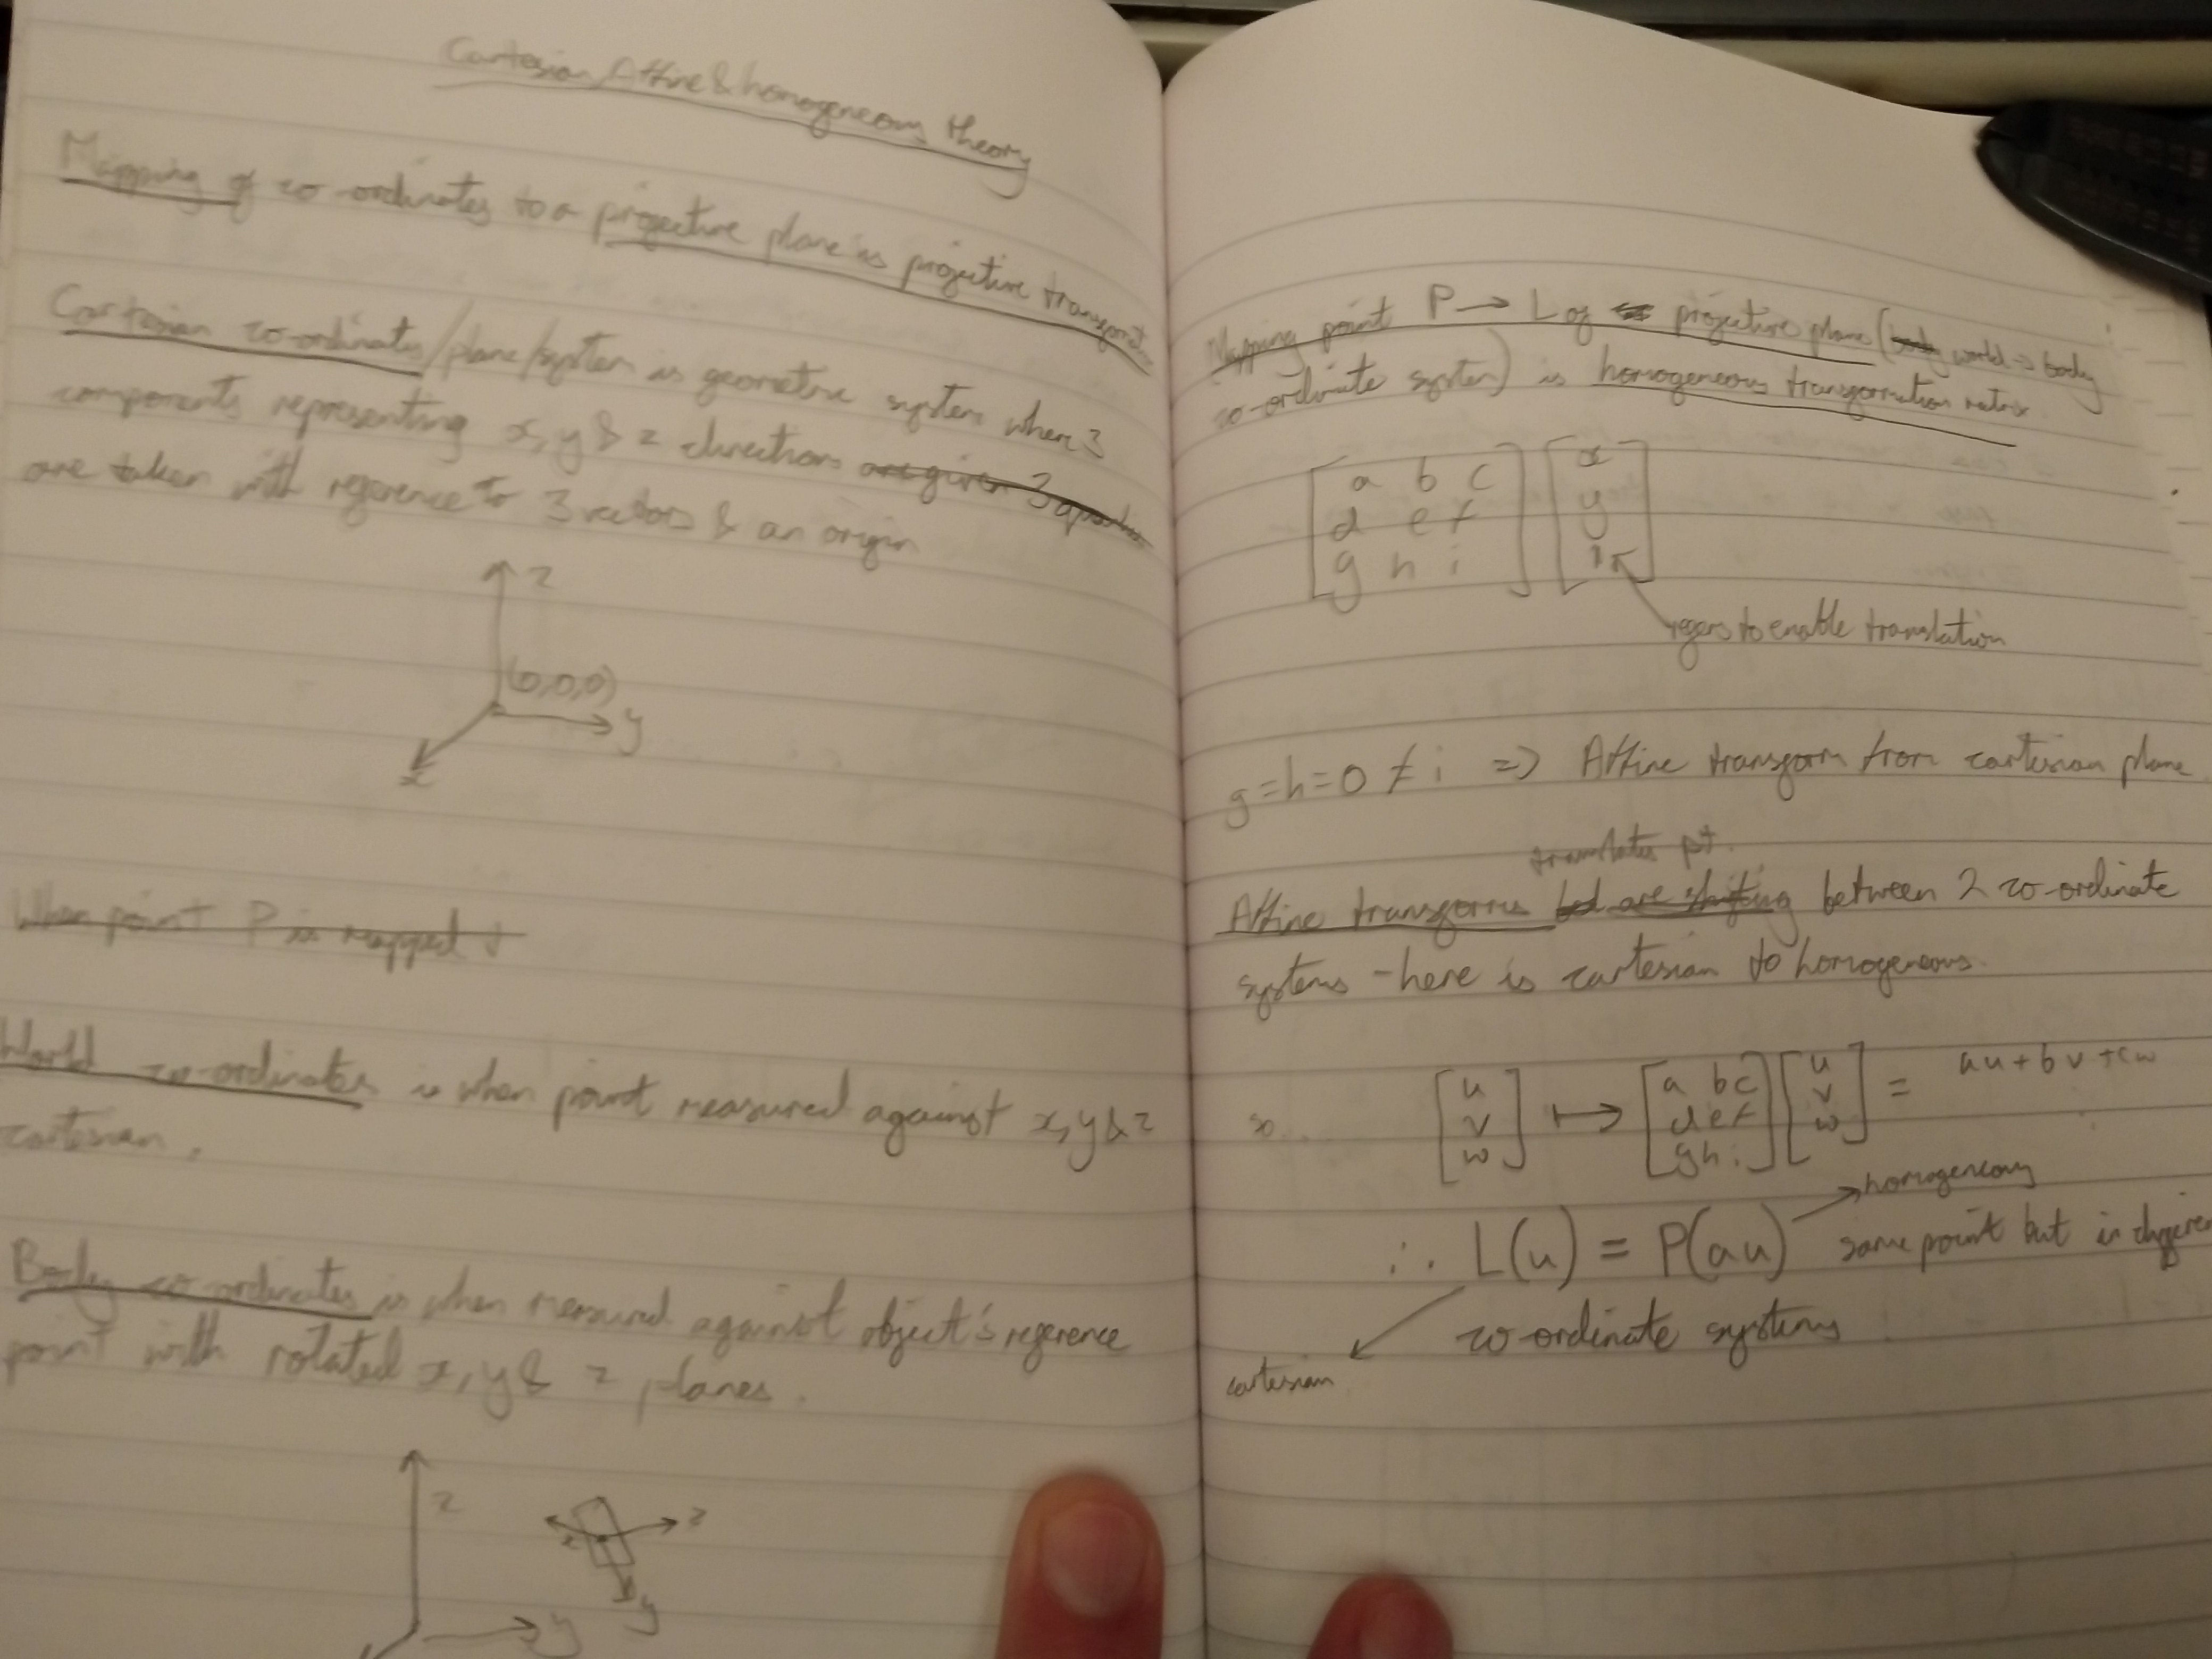 Cartesian, Affine & homogeneous theory
Mapping of co-ordinates to a projective plane is projective transformation
Cartesian co-ordinates/plane/system is geometric system where 3
components representing x, y & z directions are given 3
are taken with reference to 3 vectors & an origin
z
(0,0,0)
y
x
When point P is mapped
World co-ordinates is when point measured against x, y & z
cartesian.
Body co-ordinates is when measured against object's reference
point with rotated x, y & z planes.
z
z
x
y
y
Mapping point P → L of projective plane (body world → body
co-ordinate system) is homogeneous transformation matrix
a b c x
d e f y
g h i 1
refers to enable translation
g = h = 0 ≠ i => Affine transform from cartesian plane
translates pt.
Affine transforms are shifting between 2 co-ordinate
systems - here is cartesian to homogeneous.
so.. [u v w] ↦ [a b c d e f g h i] [u v w] = au + bv + cw
homogeneous
∴ L(u) = P(au) same point but in differen
co-ordinate systems
cartesian